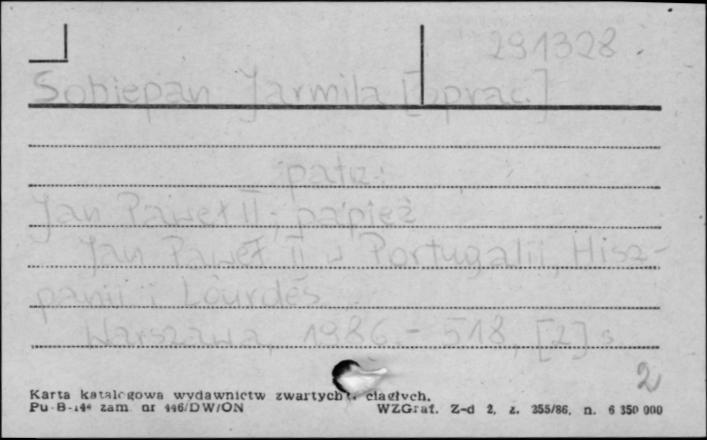 291328
Sobiepan Jarmila [oprac.]
patrz:
Jan Paweł II; papież
Jan Paweł II w Portugalii, Hisz-
panii i Lourdes
Warszawa, 1986.- 518, [2] s.
2
Karta katalogowa wydawnictw zwartych i ciągłych.
Pu-B-144 zam. nr 446/DW/ON WZGraf. Z-d 2, z. 355/86, n. 6 350 000